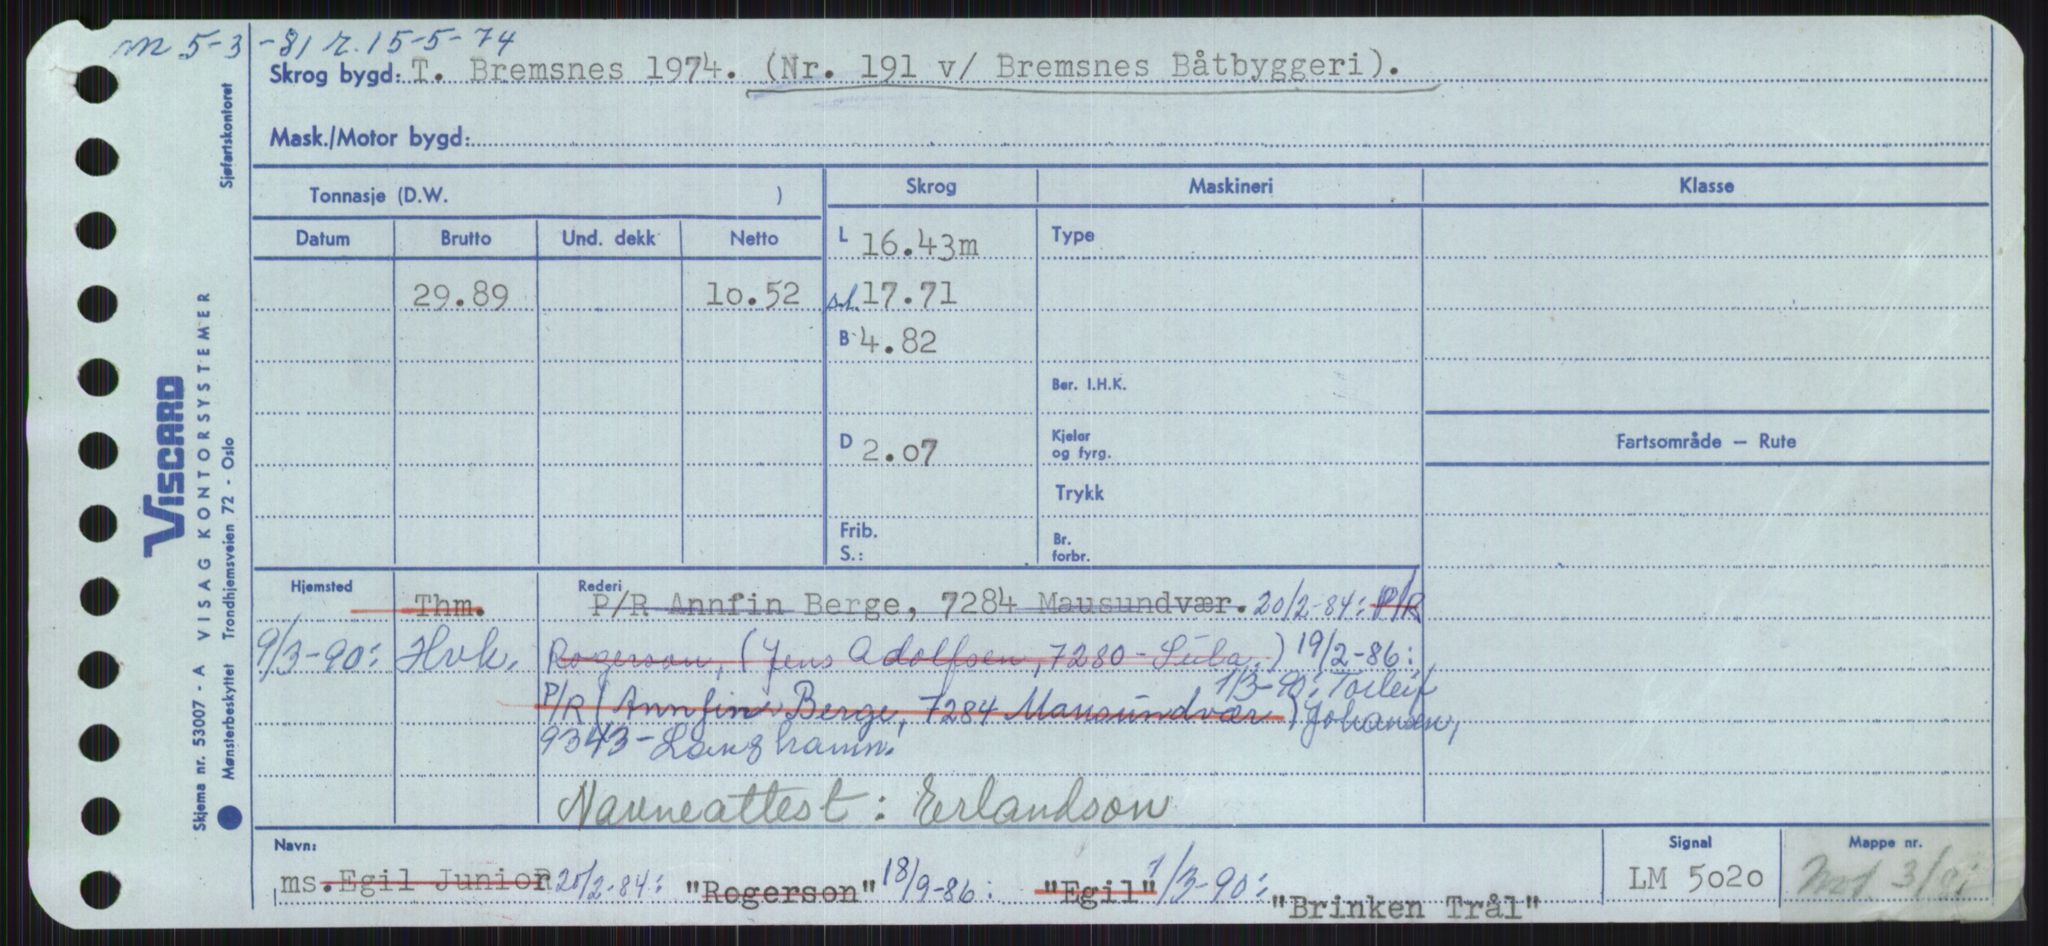 m 5-3-81 r. 15-5-74
Skrog bygd: T. Bremsnes 1974. (Nr. 191 v/ Bremsnes Båtbyggeri).
Mask./Motor bygd:
Tonnasje (D.W. )
Skrog
Maskineri
Klasse
Datum
Brutto
Und. dekk
Netto
L 16.43m
Type
29.89
10.52
s.l. 17.71
B 4.82
Ber. I.H.K.
D 2.07
Kjeler
og fyrg.
Fartsområde – Rute
Trykk
Frib.
S.:
Br.
forbr.
Hjemsted
Rederi
Thm.
P/R Annfin Berge, 7284 Mausundvær. 20/2-84: P/R
9/3-90: Hvk.
Rogerson, (Jens Adolfsen, 7280 - Sula.) 19/2-86:
P/R (Annfin Berge, 7284 Mausundvær) 1/3-90: Torleif Johansen,
9343-Langhamn.
Navneattest: Erlandson
Navn:
ms. Egil Junior 20/2-84: "Rogerson" 18/9-86: "Egil" 1/3-90: "Brinken Trål"
Signal
LM 5020
Mappe nr.
3/81
Sjøfartskontoret
VISCARD
Skjema nr. 53007 - A VISAG KONTORSYSTEMER
Mønsterbeskyttet Trondhjemsveien 72 - Oslo